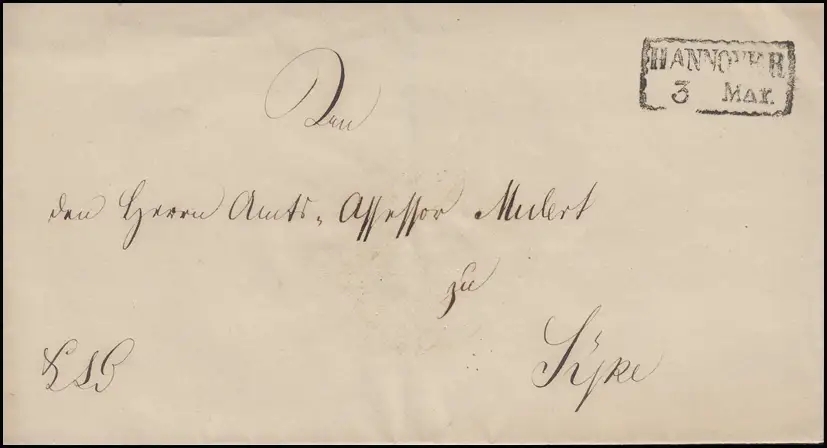 HANNOVER
3 MAR.
An
den Herrn Amts-Assessor Mulert
zu
Syke